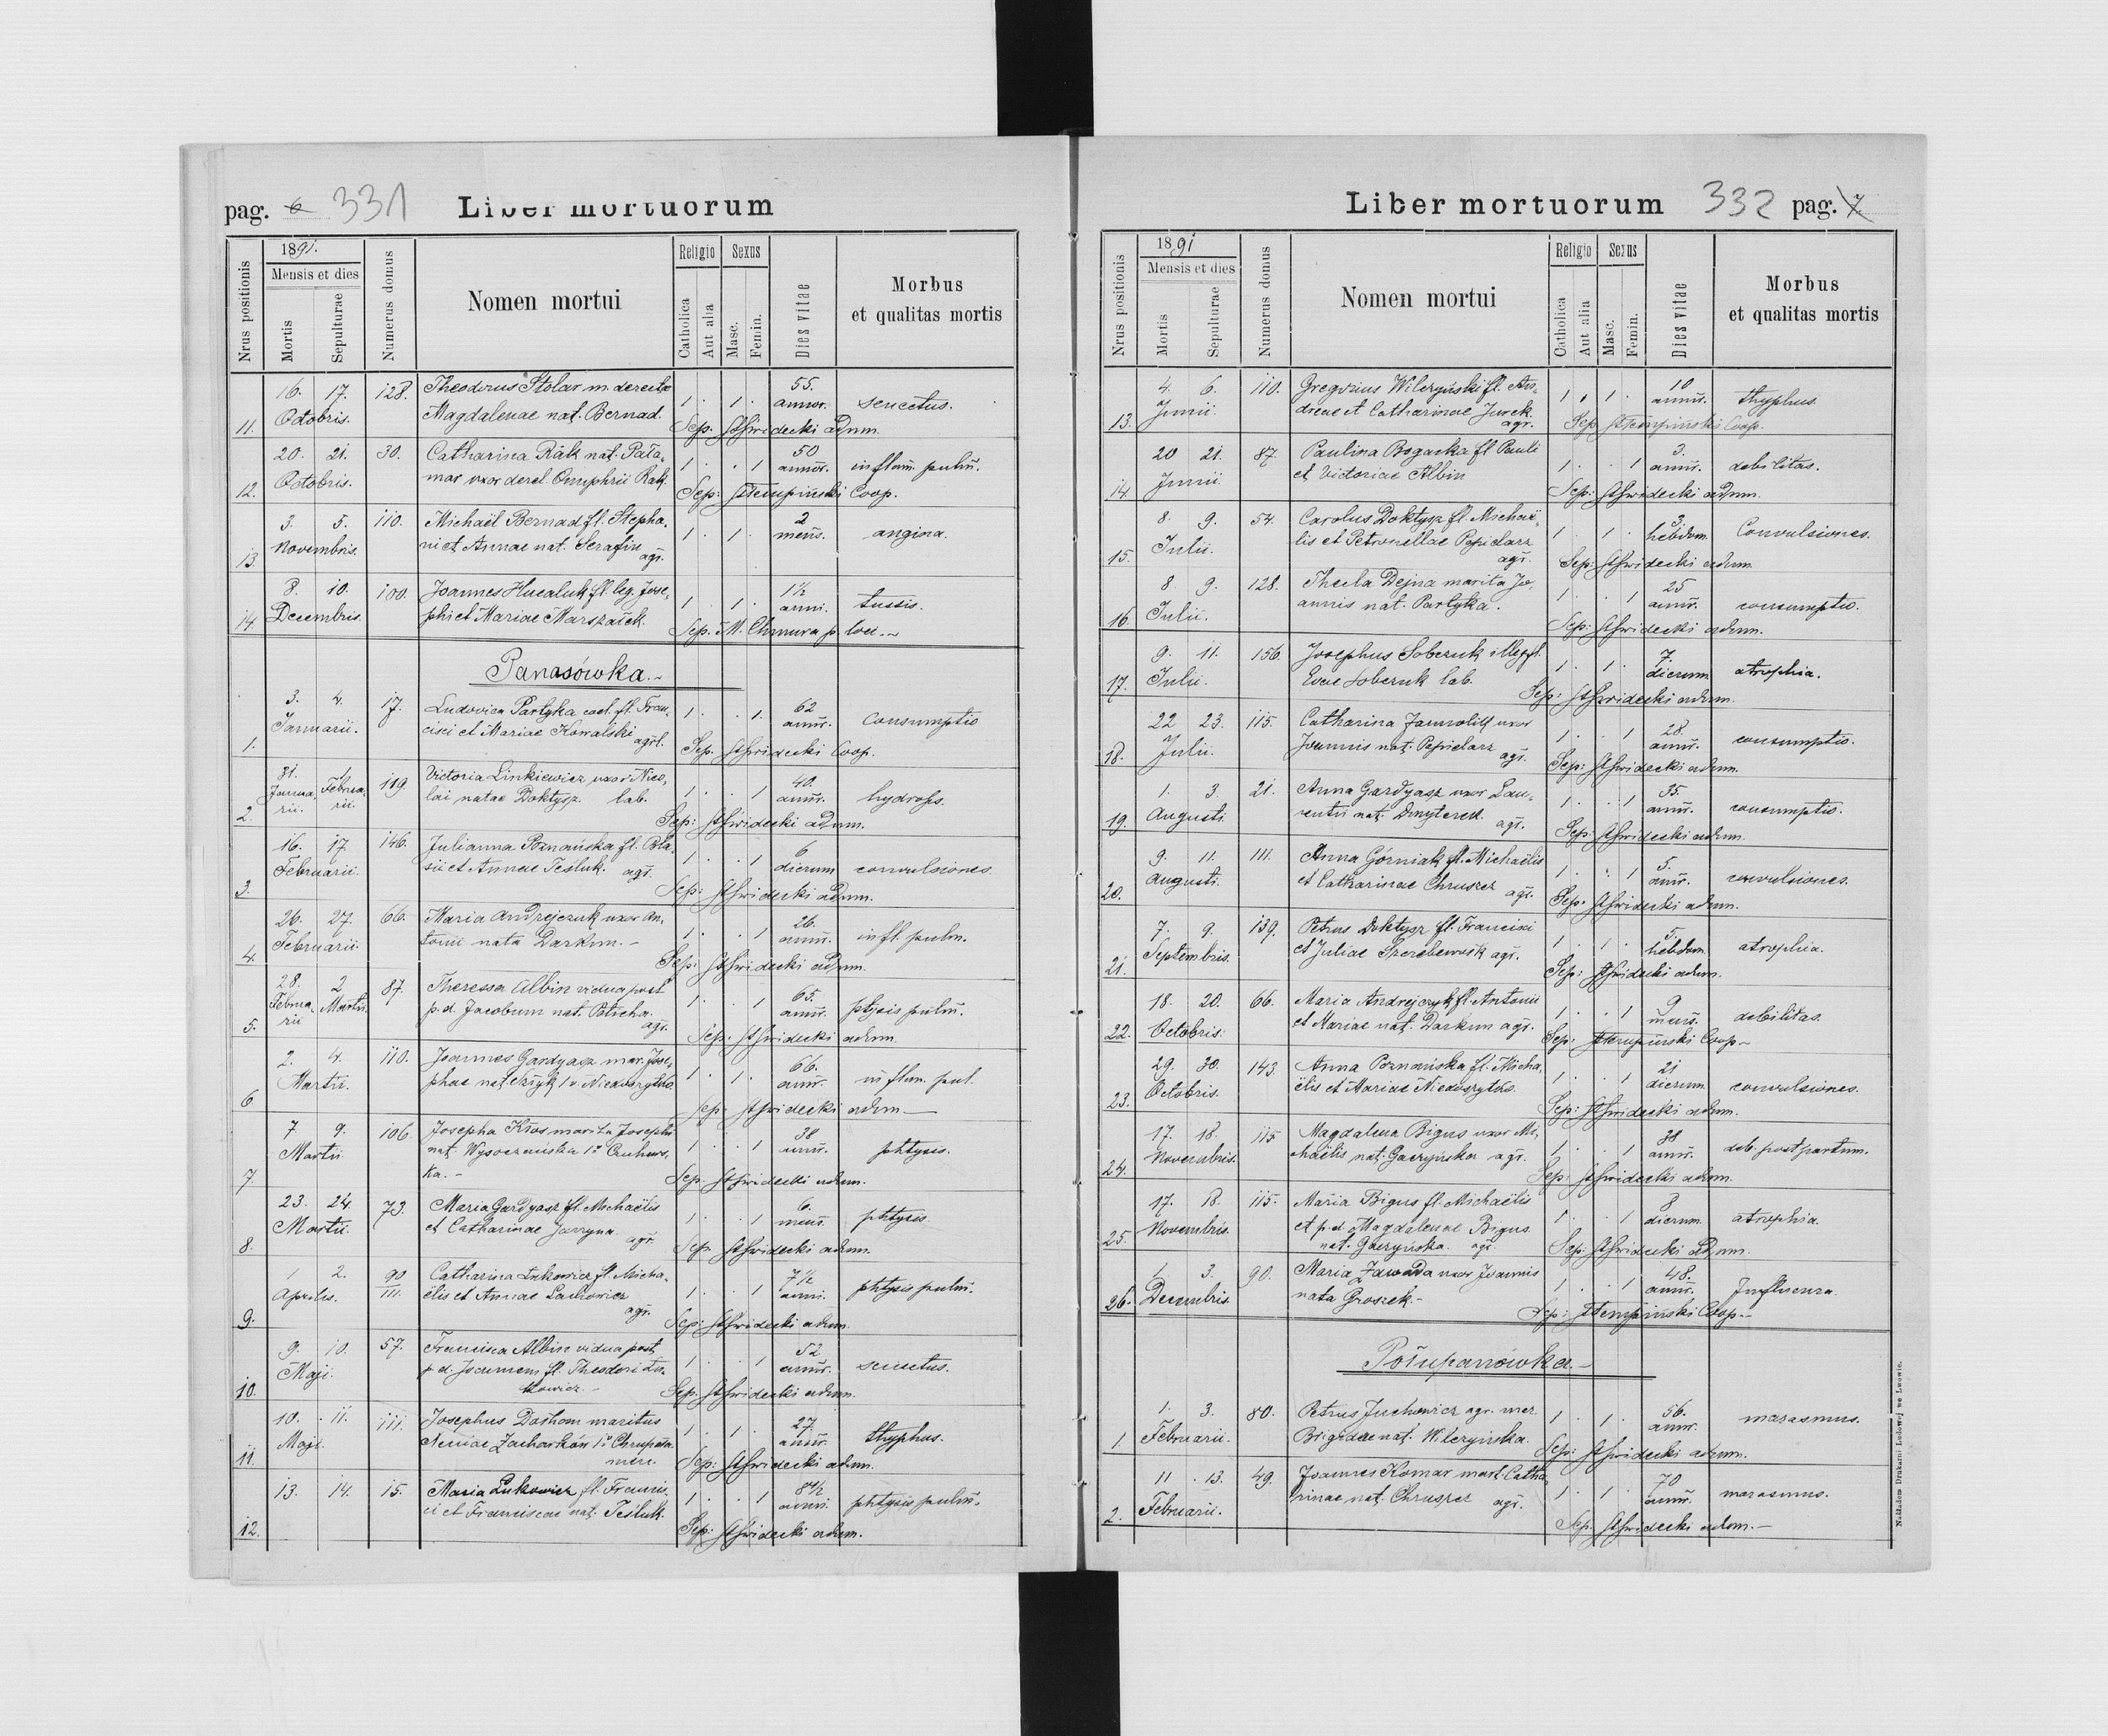 pag. 6 331 Liber mortuorum
Nrus positionis
1891.
Mensis et dies
Mortis
Sepulturae
Numerus domus
Nomen mortui
Religio
Catholica
Aut alia
Sexus
Masc.
Femin.
Dies vitae
Morbus
et qualitas mortis
11. 16. 17. Octobris. 128. Theodorus Stolar m. derelictae
Magdalenae nat. Bernad. 1 1 55. annor. senectus.
Sep. Hwidecki adnm.
12. 20. 21. Octobris. 30. Catharina Rak nat. Pała-
mar uxor derel. Onuphrii Rak. 1 1 50 annor. inflam. pulm.
Sep: Stempinski Coop.
13. 3. 5. Novembris. 110. Michaël Bernad fl. Stepha-
ni et Annae nat. Serafin agr. 1 1 2 mens. angina.
14 8. 10. Decembris. 100. Joannes Hucaluk fl. leg. Jose-
phi et Mariae Marszałek. 1 1 1½ anni. tussis.
Sep. M. Chmura p. loci.
Panasówka.
1. 3. 4. Januarii. 17. Ludovica Partyka coel. fl. Fran-
cisci et Mariae Kowalski agri. 1 1 62 annor. consumptio
Sep. Hwidecki Coop.
2 31. Janua- rii. 1 Februa- rii 119 Victoria Linkiewicz uxor Nico-
lai natae Doktysz lab. 1 1 40. annor. hydrops.
Sep: Hwidecki adnm.
3. 16. 17. Februarii. 146. Julianna Poznańska fl. Bla-
sii et Annae Tesluk. agr. 1 1 6 dierum convulsiones.
Sep: Hwidecki adnm.
4. 26. 27. Februarii 66. Maria Andrejczuk uxor An-
tonii nata Darkun. 1 1 26. annor. infl. pulm.
Sep: Hwidecki adnm.
5. 28. Februa- rii 2 Martii 87. Theressa Albin vidua post
p. d. Jacobum nat. Poticha. agr. 1 1 65. annor. ptysis pulm.
Sep: Hwidecki adnm.
6 2. 4. Martii. 110. Joannes Gardyasz mar. Jose-
phae nat. 1 1 66. annor. inflam. pul.
Sep. Hwidecki adnm.
7. 7 9. Martii 106 Josepha Kłos marita Josephi
nat. Wysoczańska 1º Czuhews-
ka. 1 1 38 annor. phtysis.
Sep. Hwidecki adnm.
8. 23. 24. Martii. 73. Maria Gardyasz fl. Michaëlis
et Catharinae Jarzyna agr. 1 1 6. mens. phtysis
Sep. Hwidecki adnm.
9. 1 2. Aprilis. 90 111. Catharina Łukowicz fl. Micha-
ëlis et Annae agr. 1 1 7½ anni. phtysis pulm.
Sep: Hwidecki adnm.
10. 9. 10. Maji. 57. Francisca Albin vidua post
p. d. fl. Theodori Łu-
kowicz. 1 1 52 annor. senectus.
Sep. Hwidecki adnm.
11. 10. 11. Maji. 111. Josephus Dorhom maritus
Xeniae Zacharków 1º 1 1 27 annor. thyphus.
Sep: Hwidecki adnm.
12. 13. 14. 15. Maria Łukowicz fl. Francis-
ci et Franciscae nat. Tesluk. 1 1 8½ anni. phtysis pulm.
Sep: Hwidecki adnm.
Liber mortuorum 332 pag. 7
Nrus positionis
1891
Mensis et dies
Mortis
Sepulturae
Numerus domus
Nomen mortui
Religio
Catholica
Aut alia
Sexus
Masc.
Femin.
Dies vitae
Morbus
et qualitas mortis
13. 4. 6. Junii. 110. Gregorius Wilczyński fl. An-
dreae et Catharinae Jurek. agr. 1 1 10 annor. thyphus
Sep. Stempinski Coop.
14 20 21. Junii 87. Paulina Bogacka fl Pauli
et Victoriae Albin 1 1 3. annor. debilitas.
Sep: Hwidecki adnm.
15. 8. 9. Julii. 54. Carolus Doktysz fl. Michaë-
lis et Petronellae Popielarz agr. 1 1 3. hebdom. Convulsiones.
Sep: Hwidecki adnm
16 8 9. Julii. 128. Thecla Dejna marita Jo-
annis nat. Partyka. 1 1 25 annor. consumptio.
Sep: Hwidecki adnm.
17. 9. 11. Julii. 156. Josephus Soberuk illeg. fl.
Evae Soberuk lab. 1 1 7. dierum atrophia.
Sep: Hwidecki adnm.
18. 22 23. Julii. 115. Catharina uxor
Joannis nat. Popielarz agr. 1 1 28. annor. consumptio.
Sep: Hwidecki adnm.
19. 1. 3. Augusti 21. Anna Gardyasz uxor Lau-
rentii nat. Dmyterek. agr. 1 1 35. annor. consumptio.
Sep: Hwidecki adnm.
20. 9. 11. Augusti. 111. Anna Górniak fl. Michaëlis
et Catharinae Chruszcz agr. 1 1 5. annor. convulsiones.
Sep: Hwidecki adnm.
21. 7. 9. Septembris. 139. Petrus Doktysz fl. Francisci
et Juliae agr. 1 1 5. hebdom. atrophia.
Sep: Hwidecki adnm.
22. 18. 20. Octobris. 66. Maria Andrejczyk fl. Antonii
et Mariae nat. Darkun agr. 1 1 9 mens. debilitas.
Sep: Stempinski Coop
23. 29. 30. Octobris. 143. Anna Poznańska fl. Micha-
ëlis et Mariae 1 1 21 dierum convulsiones.
Sep: Hwidecki adnm.
24. 17. 18. Novembris. 115 Magdalena Bigus uxor Mi-
chaëlis nat. Gaczyńska agr. 1 1 38 annor. deb. post partum.
Sep: Hwidecki adnm.
25. 17. 18. Novembris. 115. Maria Bigus fl. Michaëlis
et p. d. Magdalenae Bigus
nat. Gaczyńska. agr. 1 1 8 dierum atrophia.
Sep: Hwidecki adnm.
26. 1. 3. Decembris. 90. Maria Zawada uxor Joannis
nata Groszek. 1 1 48. annor. Influenza.
Sep: Stempinski Coop
Połupanówka.
1. 1. 3. Februarii. 80. Petrus Juchowicz agr. mar
Brigidae nat. Wilczyńska. 1 1 56. annor. marasmus.
Sep: Hwidecki adnm.
2. 11 13. Februarii. 49. Joannes Komar marit. Catha-
rinae nat. Chruszcz agr. 1 1 70 annor. marasmus.
Sep. Hwidecki adnm.
Nakładem Drukarni Ludowej we Lwowie.